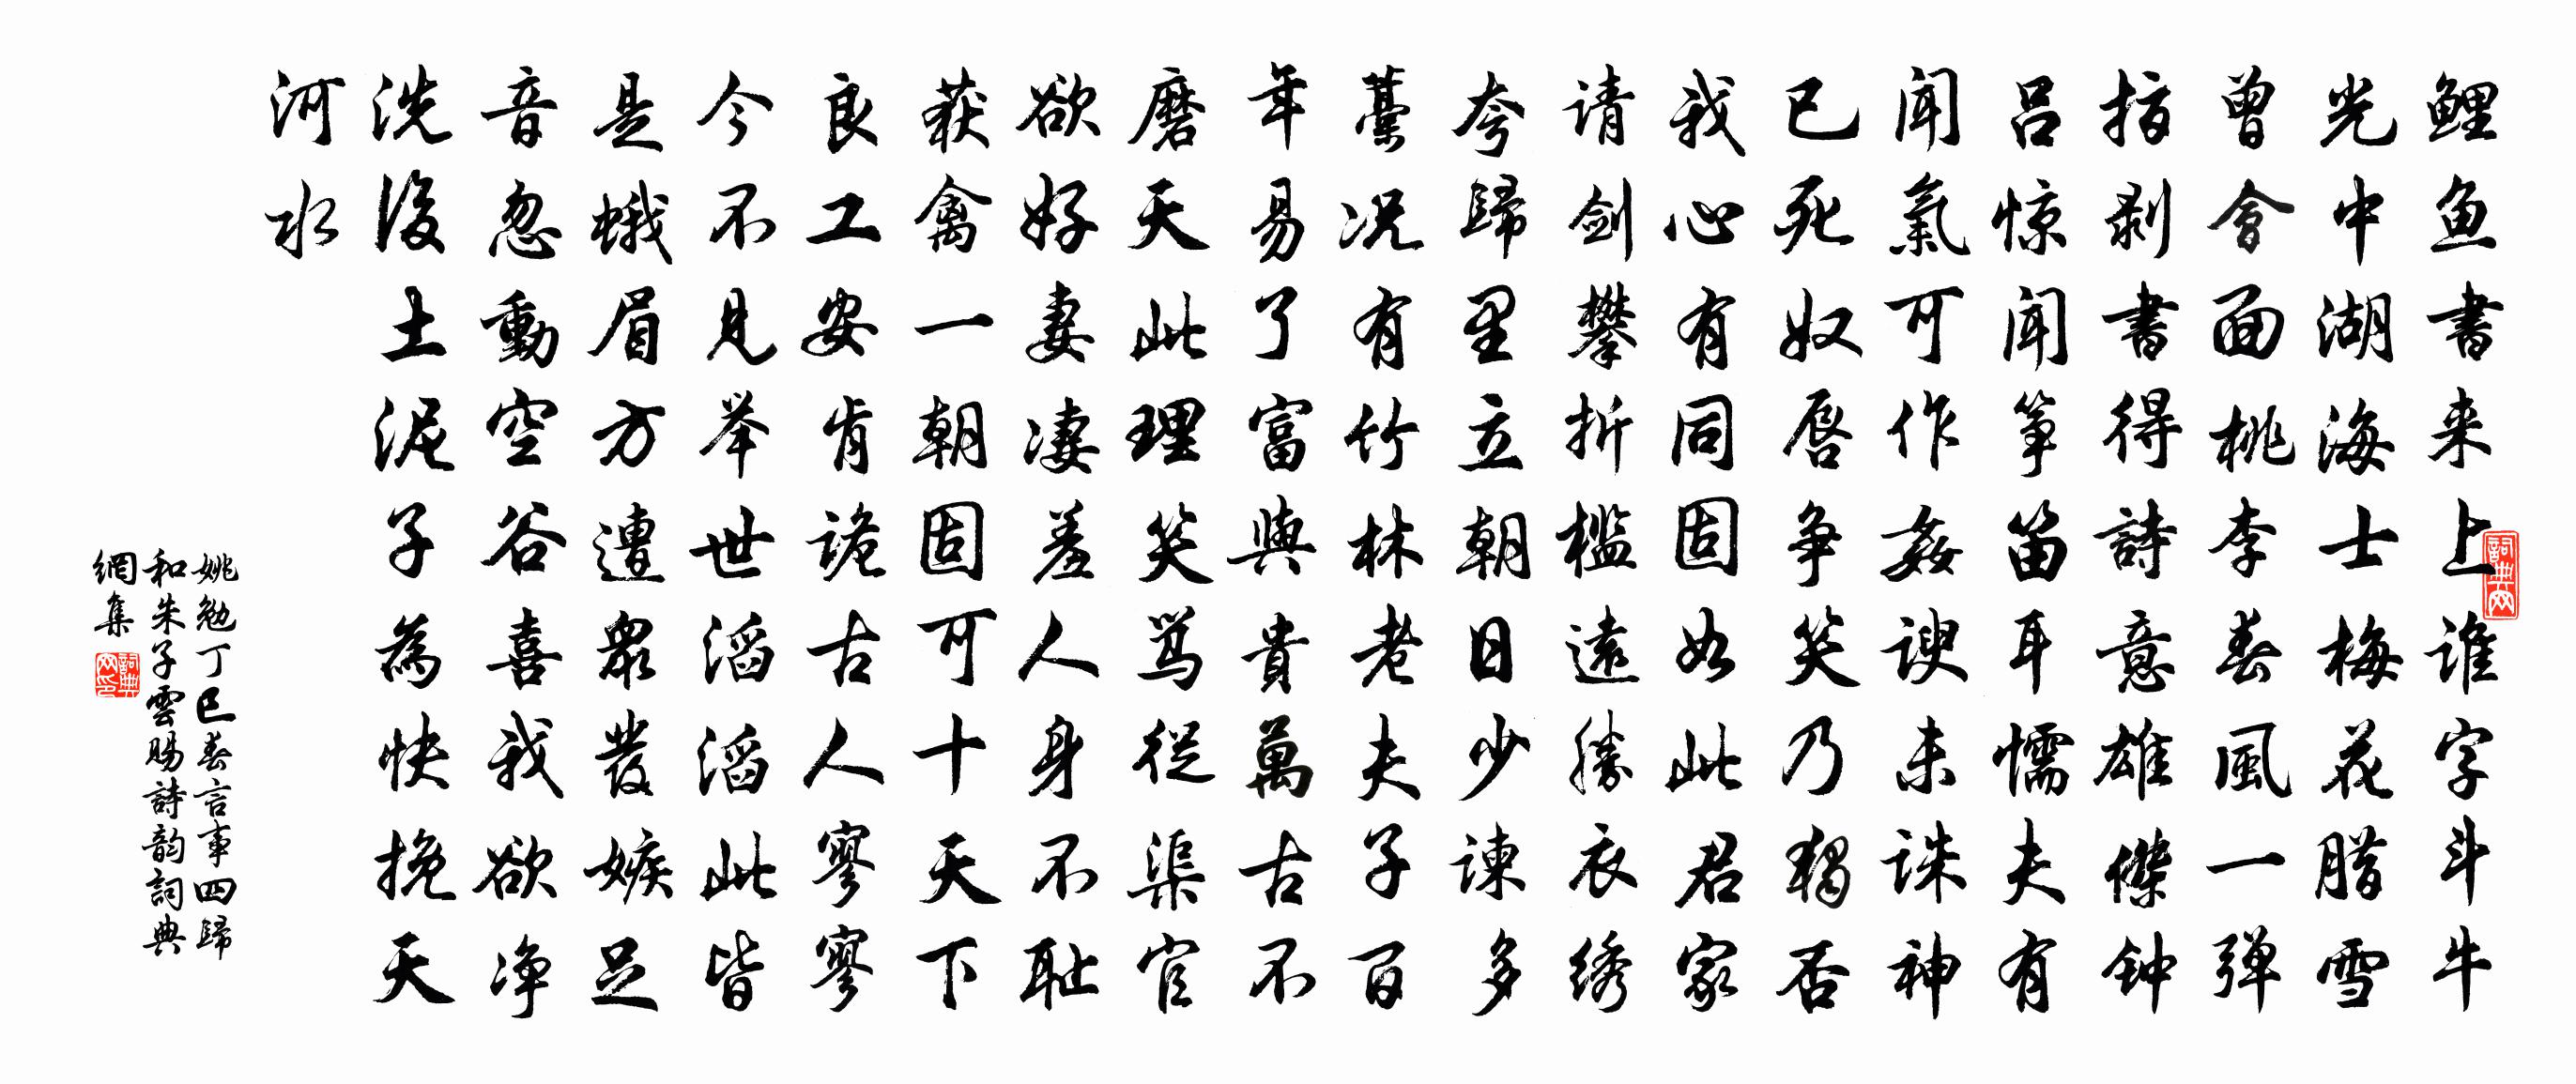 鲤鱼書来上谁字斗牛
光中湖海士梅花腊雪
曾會面桃李春風一弹
指剥書得詩意雄傑钟
吕惊闻筝笛耳懦夫有
闻氣可作姦谀未诛神
已死奴唇争笑乃獨否
我心有同固如此君家
请剑攀折槛遠勝衣绣
夸歸里立朝日少谏多
藁况有竹林老夫子百
年易了富與貴萬古不
磨天此理笑骂從渠官
欲好妻凄羞人身不耻
获禽一朝固可十天下
良工安肯詭古人寥寥
今不見举世滔滔此皆
是蛾眉方遭眾發嫉足
音忽動空谷喜我欲净
洗後土泥子為快挽天
河水
姚勉丁巳春言事四歸
和朱子雲賜詩韵詞典
網集
詞典网
詞典网印